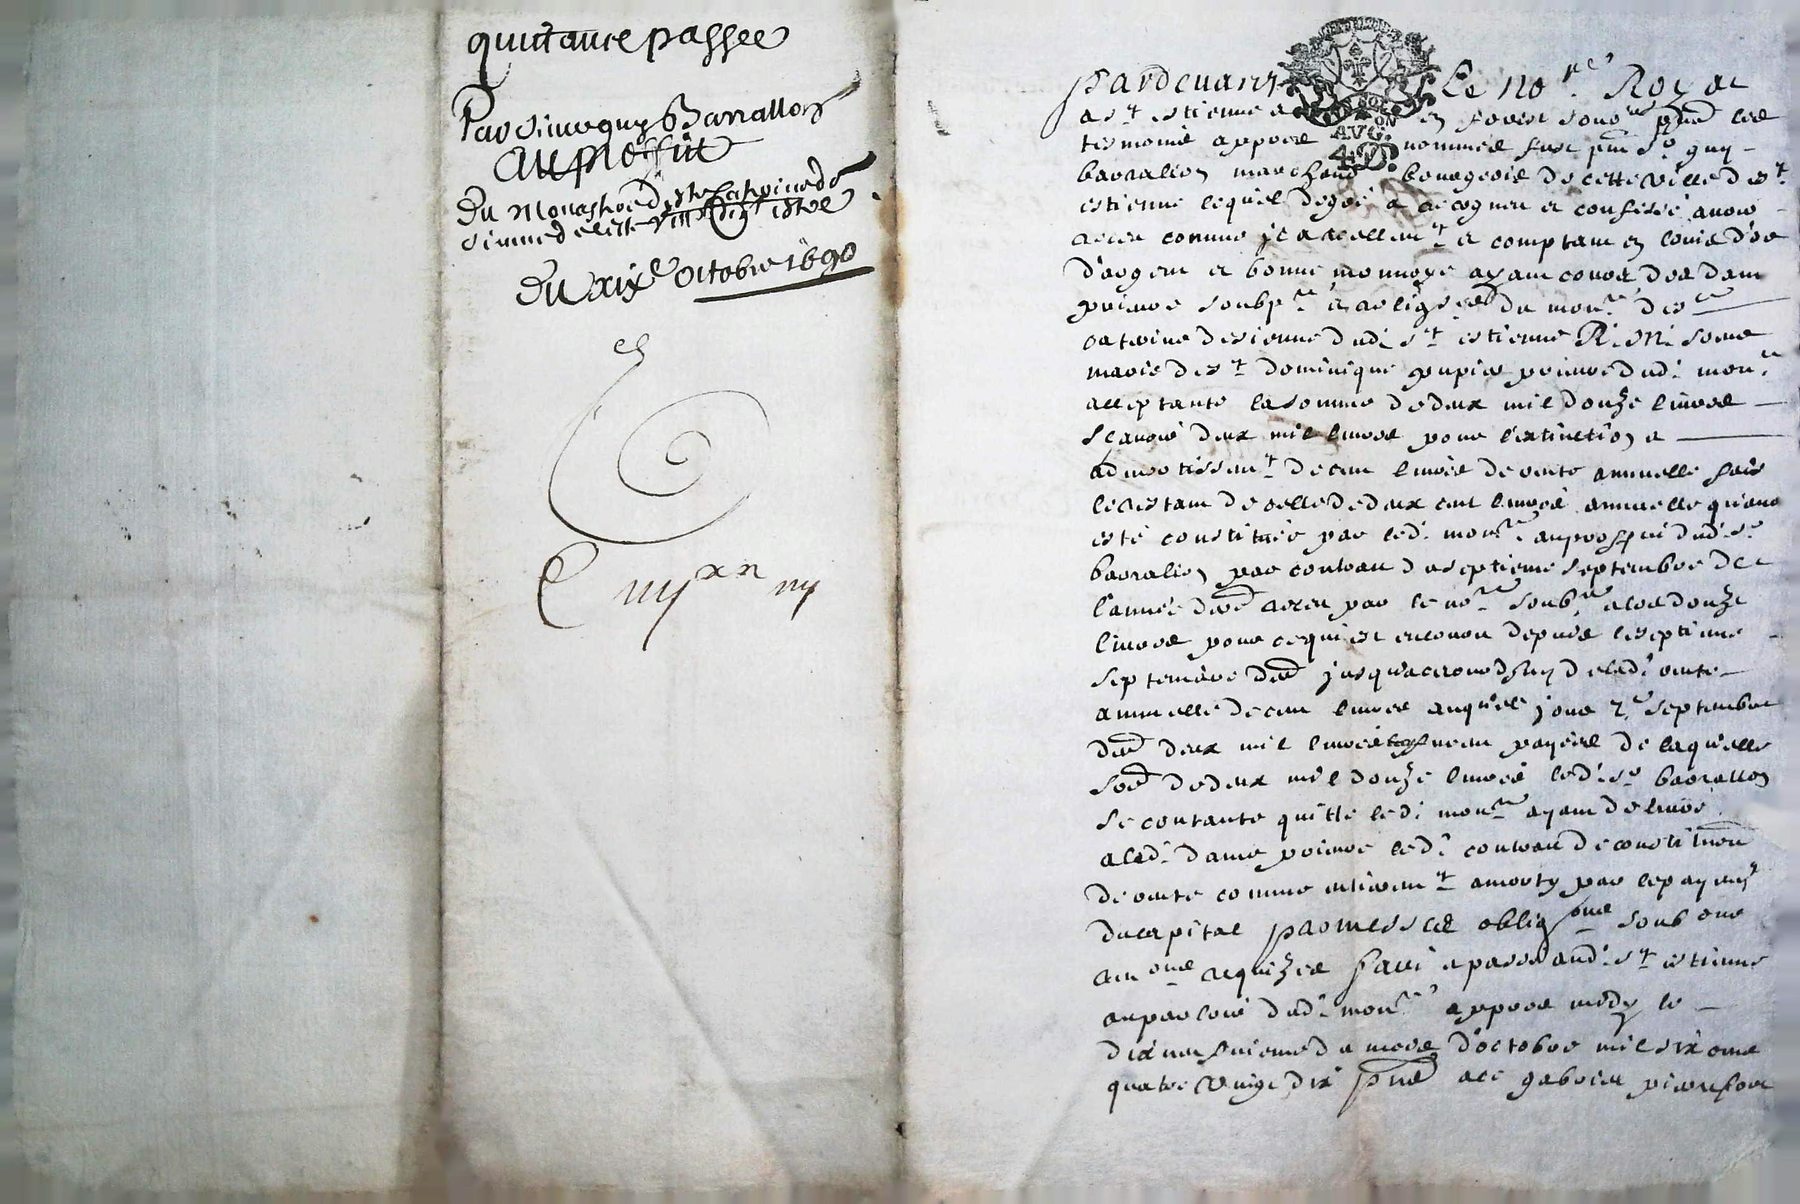 quittance passee
Par sieur guy Barrallon
au proffit
Du Monastere de ste Catherine de
sienne de ceste ville
Du xix.e Octobre 1690
Pardevant Le no.re Royal
a s.t estienne en forest soub.ne p̄nt les
tesmoins appres nommes fust p̄nt s.r guy
barralion marchand bourgeois de cette ville de s.t
estienne lequel de gré a recogneu et confessé avoir
receu comme reellem.t et comptant en louis d'or
d'argent et bonne monnoye ayant cours des dam
prieure soubp.re et religses du mon.re de s.te
catrine de sienne dud. s.t estienne R. M. soeur
marie de s.t dominique pupier prieure dud. mon.re
acceptante la somme de deux mil douze livres
scavoir deux mil livres pour l'extinction et
admortissem.t de cent livres de rente annuelle fais
le restant de celle de deux cent livres annuelle qu'avo
esté constituée par led. mon.re au proffit dud. s.r
barralion par contract du septieme septembre de
l'année der̄e receu par le no.re soub.né et les douze
livres pour ce qui est encouru depuis le septieme
septembre der̄ jusqu'a ce jourd'huy de lad. rente
annuelle de cent livres auquel jour 7.e septembre
der̄ deux mil livres payés de laquelle
som̄e de deux mil douze livres led. s.r barrallon
se contante quitte led. mon.re ayant delivré
a lad. dame prieure led. contract de constitu̅on
de rente comme entierem.t amorty par le payem.t
du capital promesses oblig.ons soub.ons
ren.ons requizes faict et passé aud. s.t estienne
au parloir dud. mon.re appres midy le
dix neufvieme du mois d'octobre mil six cens
quatre vingt dix p̄nts a ce gabriel pierrefort